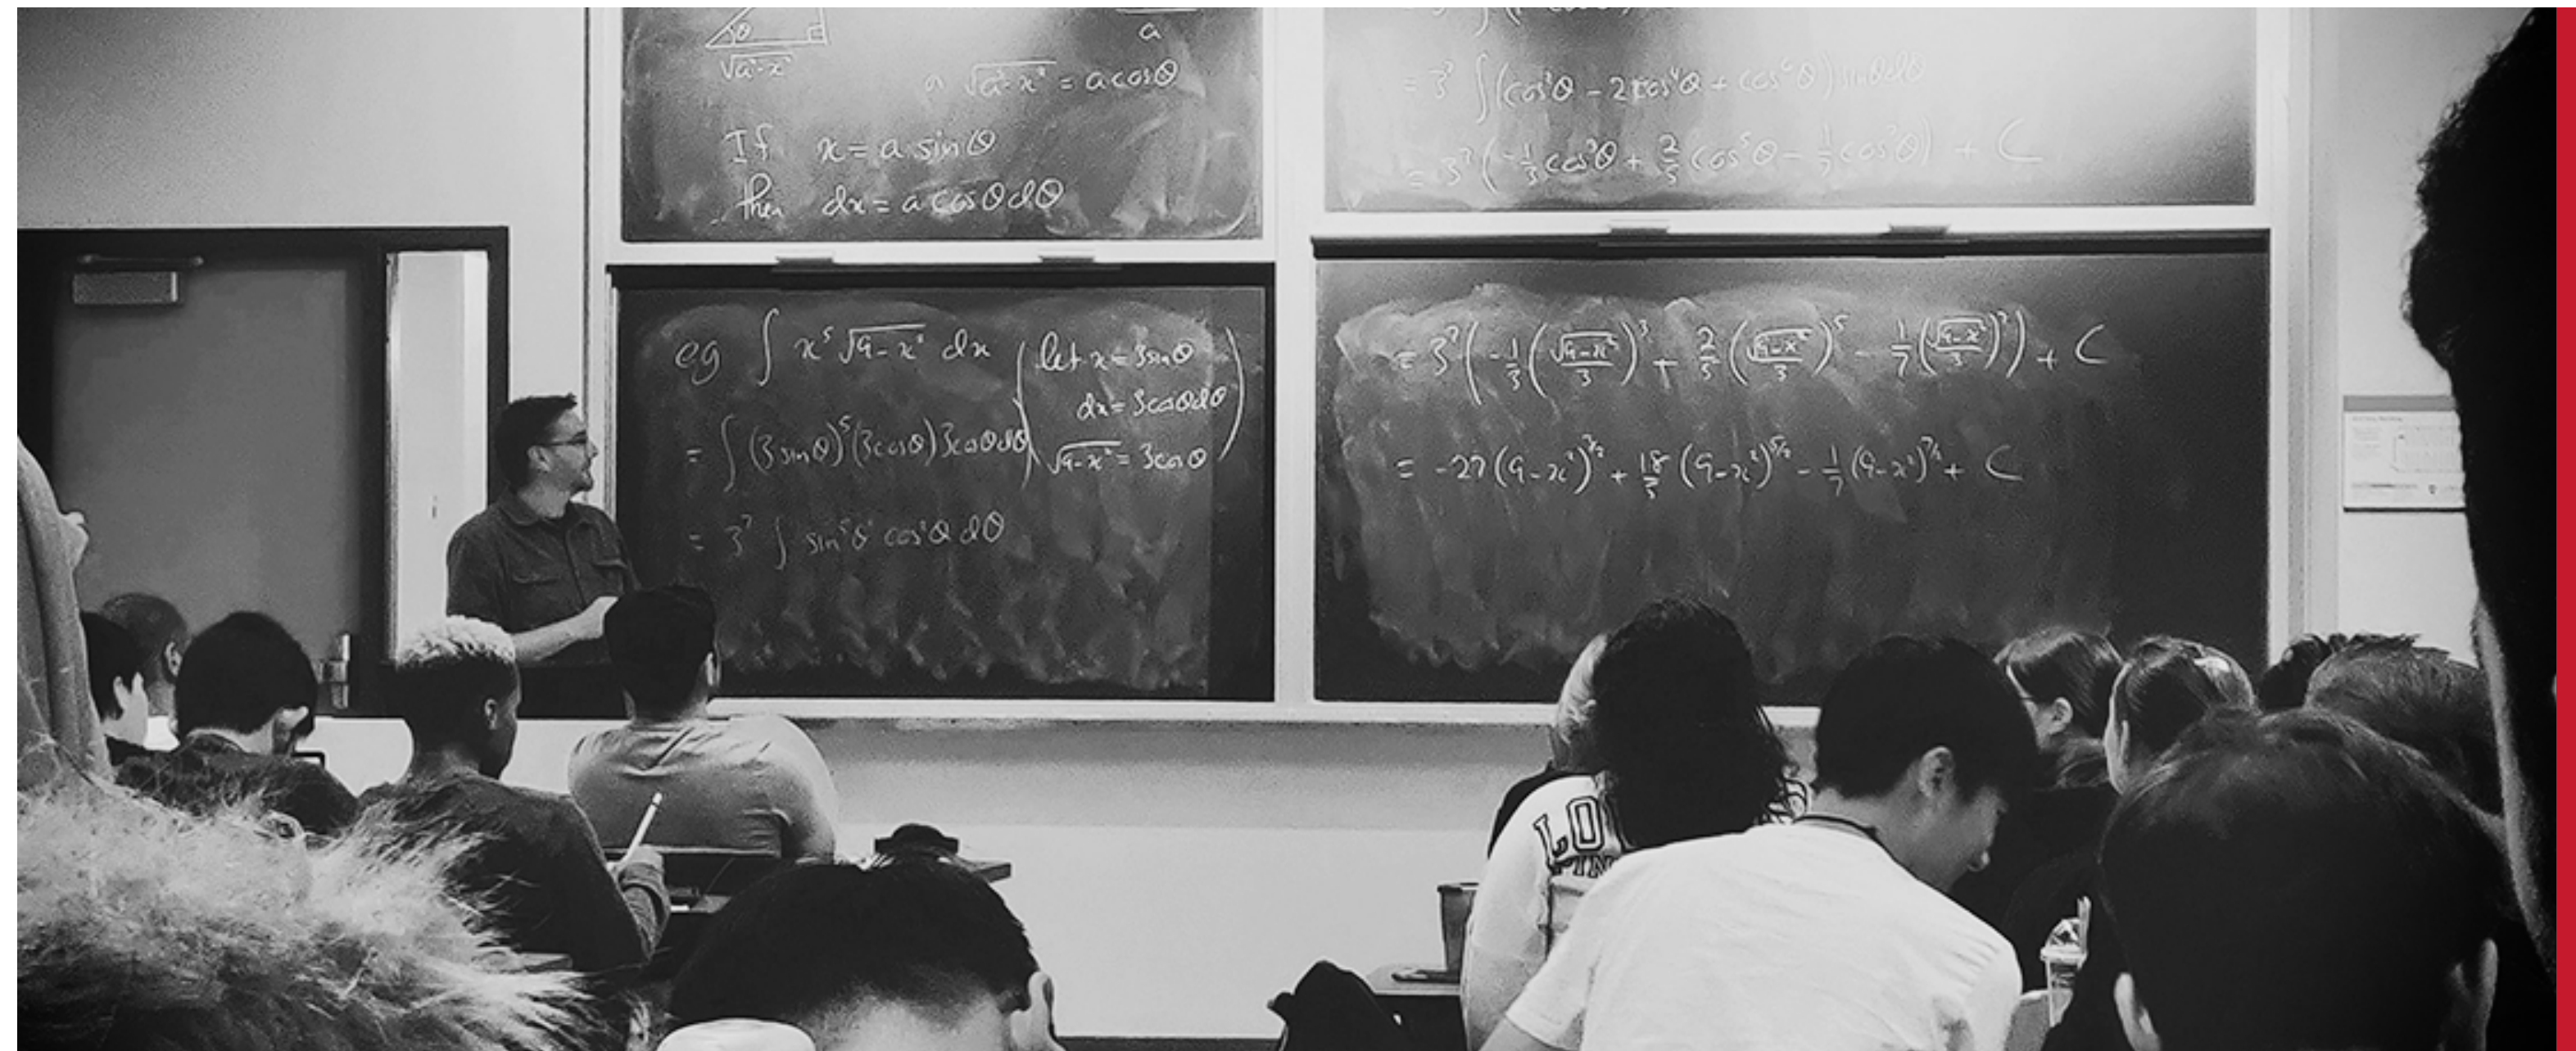 a
√(a²-x²)
√(a²-x²) = a cosθ
If x = a sinθ
then dx = a cosθ dθ
eg ∫ x⁵ √(9-x²) dx (let x = 3sinθ
dx = 3cosθdθ
√(9-x²) = 3cosθ)
= ∫ (3sinθ)⁵ (3cosθ) 3cosθdθ
= 3⁷ ∫ sin⁵θ cos²θ dθ
= 3⁷ ∫ (cos²θ - 2cos⁴θ + cos⁶θ) sinθdθ
= 3⁷ (-1/3 cos³θ + 2/5 cos⁵θ - 1/7 cos⁷θ) + C
= 3⁷ (-1/3 (√(9-x²)/3)³ + 2/5 (√(9-x²)/3)⁵ - 1/7 (√(9-x²)/3)⁷) + C
= -27 (9-x²)^(3/2) + 18/5 (9-x²)^(5/2) - 1/7 (9-x²)^(7/2) + C
LO